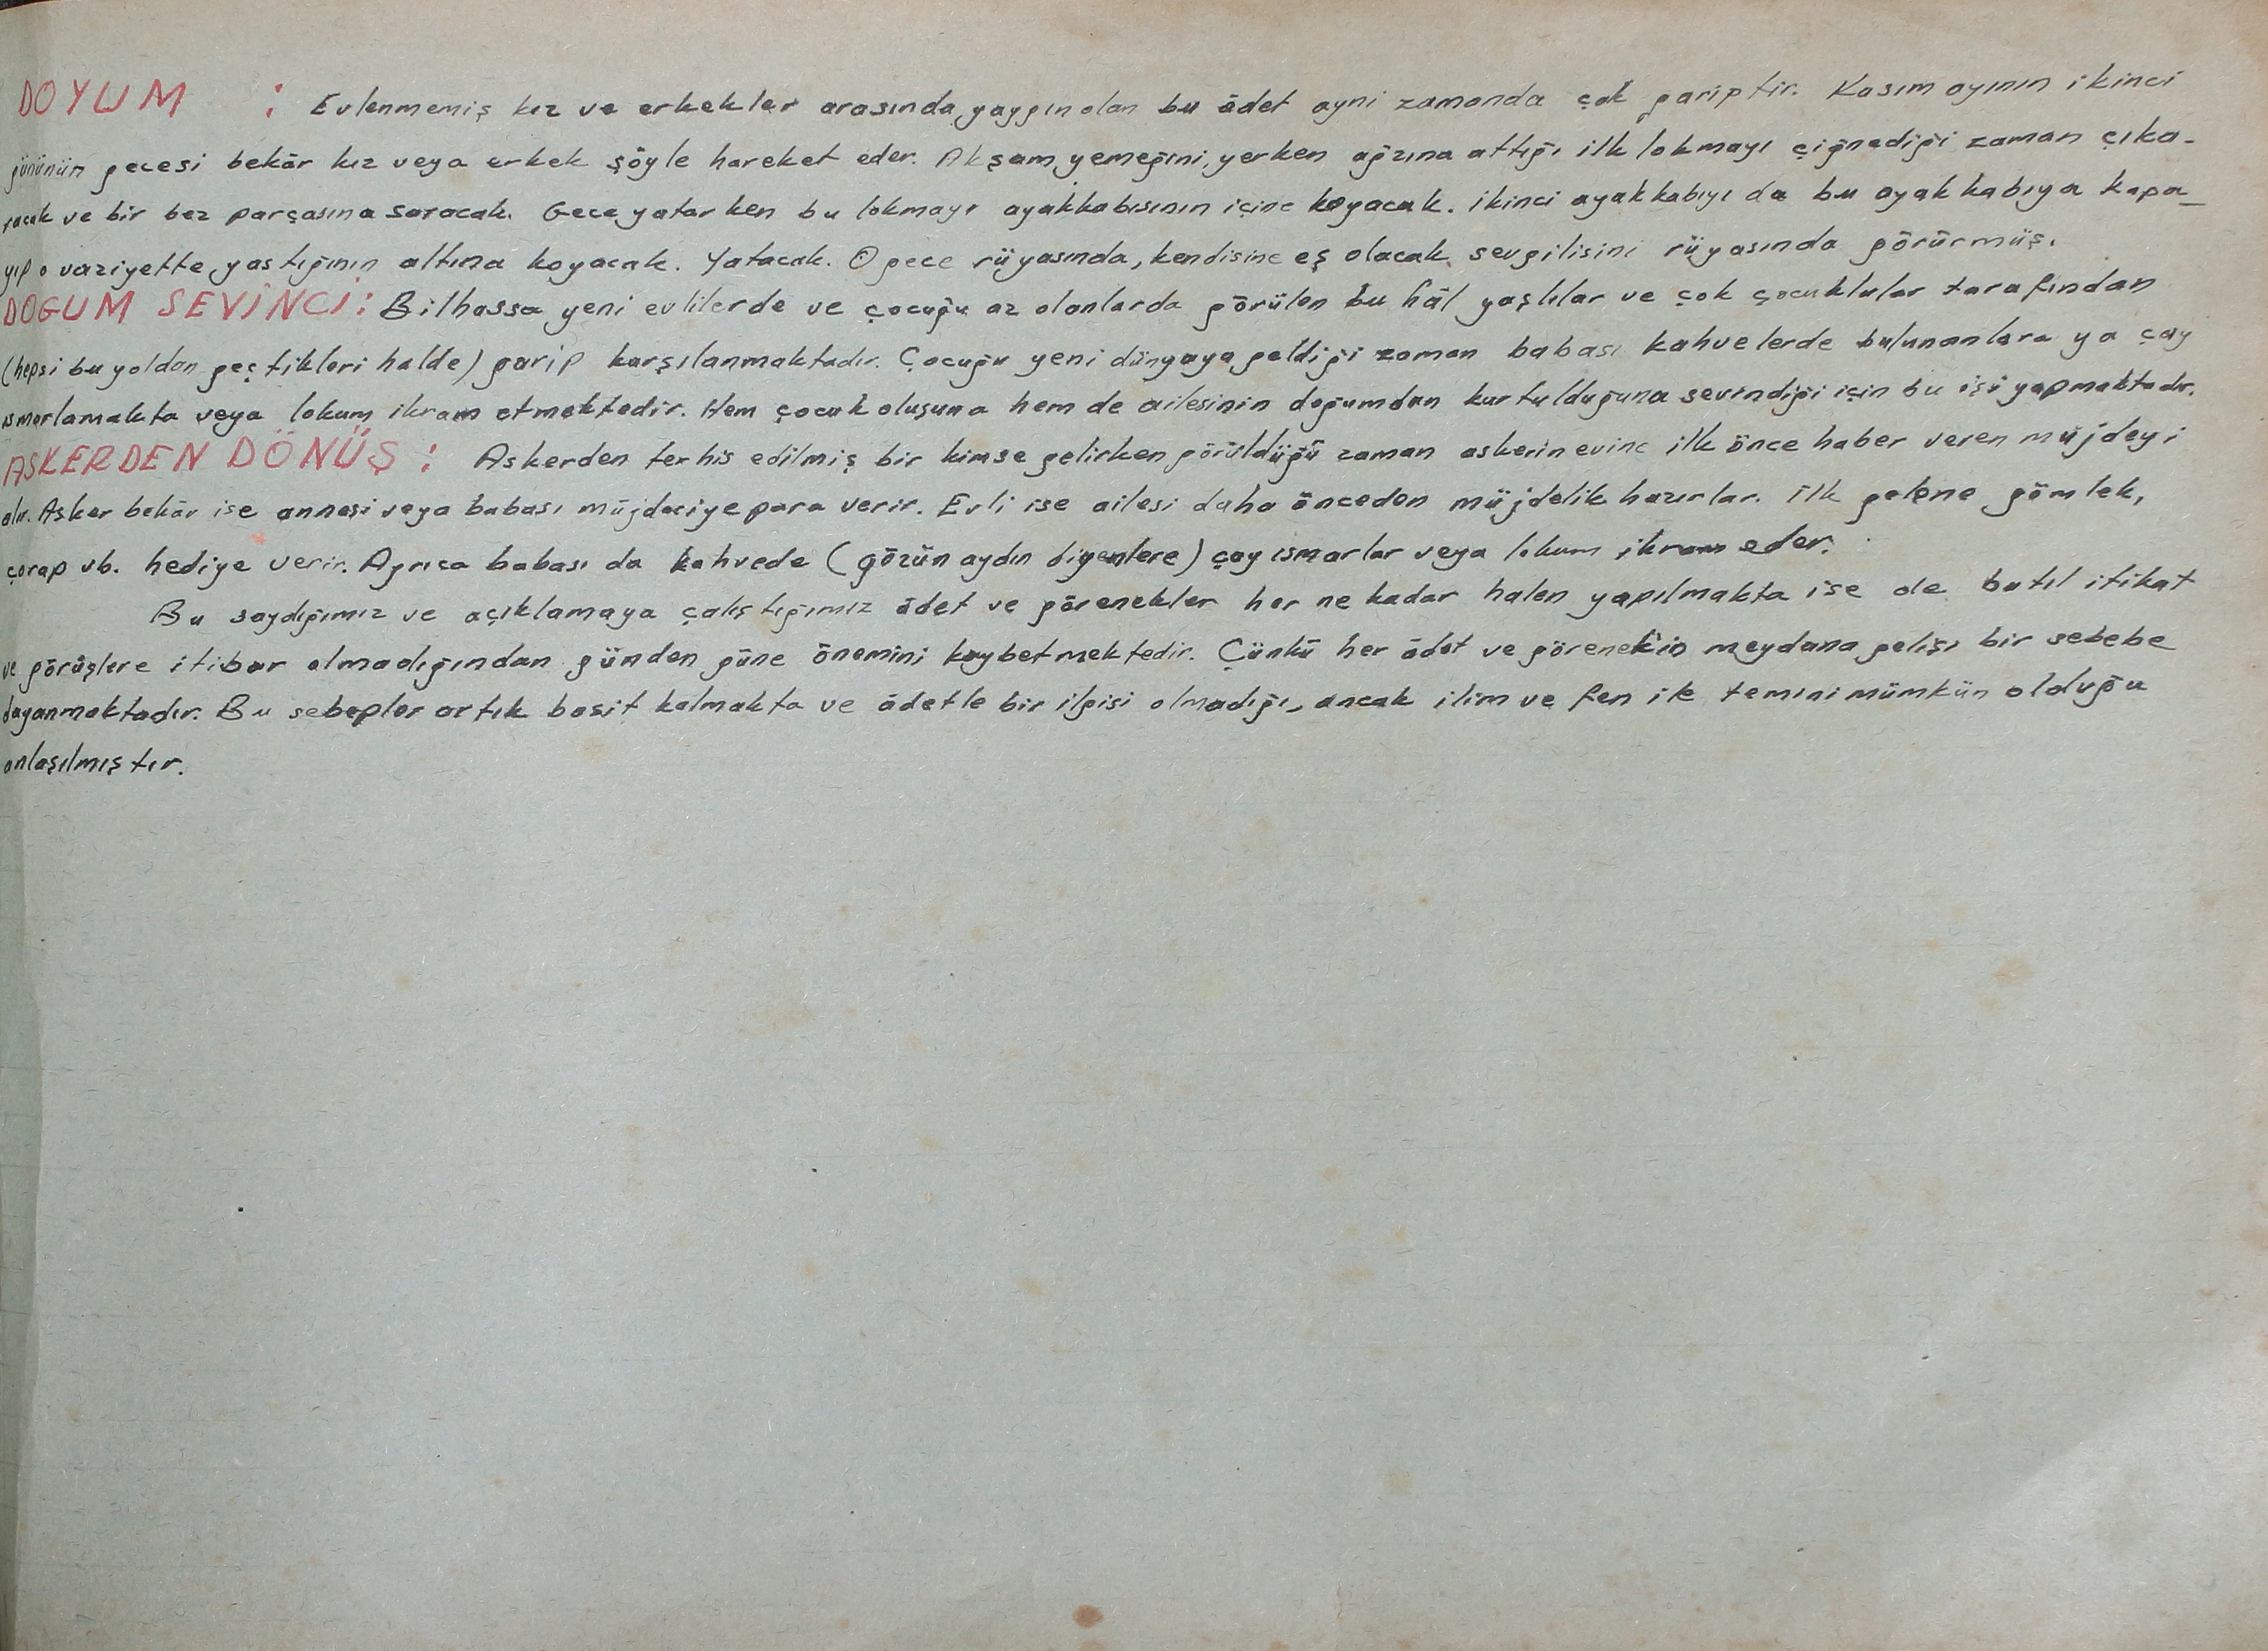 DOYUM : Evlenmemiş kız ve erkekler arasında yaygın olan bu âdet ayni zamanda çok gariptir. Kasım ayının ikinci
gününün gecesi bekâr kız veya erkek şöyle hareket eder. Akşam yemeğini yerken ağzına attığı ilk lokmayı çiğnediği zaman çıka-
racak ve bir bez parçasına saracak. Gece yatarken bu lokmayı ayakkabısının içine koyacak. ikinci ayakkabıyı da bu ayakkabıya kapa-
yıp o vaziyette yastığının altına koyacak. Yatacak. O gece rüyasında, kendisine eş olacak sevgilisini rüyasında görürmüş.
DOGUM SEVİNCİ : Bilhassa yeni evlilerde ve çocuğu az olanlarda görülen bu hâl yaşlılar ve çok çocuklular tarafından
(hepsi bu yoldan geçtikleri halde) garip karşılanmaktadır. Çocuğu yeni dünyaya geldiği zaman babası kahvelerde bulunanlara ya çay
ısmarlamakta veya lokum ikram etmektedir. Hem çocuk oluşuna hem de ailesinin doğumdan kurtulduğuna sevindiği için bu işi yapmaktadır.
ASKERDEN DÖNÜŞ : Askerden terhis edilmiş bir kimse gelirken görüldüğü zaman askerin evine ilk önce haber veren müjdeyi
alır. Asker bekâr ise annesi veya babası müjdeciye para verir. Evli ise ailesi daha önceden müjdelik hazırlar. İlk gelene gömlek,
çorap vb. hediye verir. Ayrıca babası da kahvede (gözün aydın diyenlere) çay ısmarlar veya lokum ikram eder.
Bu saydığımız ve açıklamaya çalıştığımız âdet ve görenekler her ne kadar halen yapılmakta ise de batıl itikat
ve görüşlere itibar olmadığından günden güne önemini kaybetmektedir. Çünkü her âdet ve göreneğin meydana gelişi bir sebebe
dayanmaktadır. Bu sebepler artık basit kalmakta ve âdetle bir ilgisi olmadığı, ancak ilim ve fen ile temini mümkün olduğu
anlaşılmıştır.